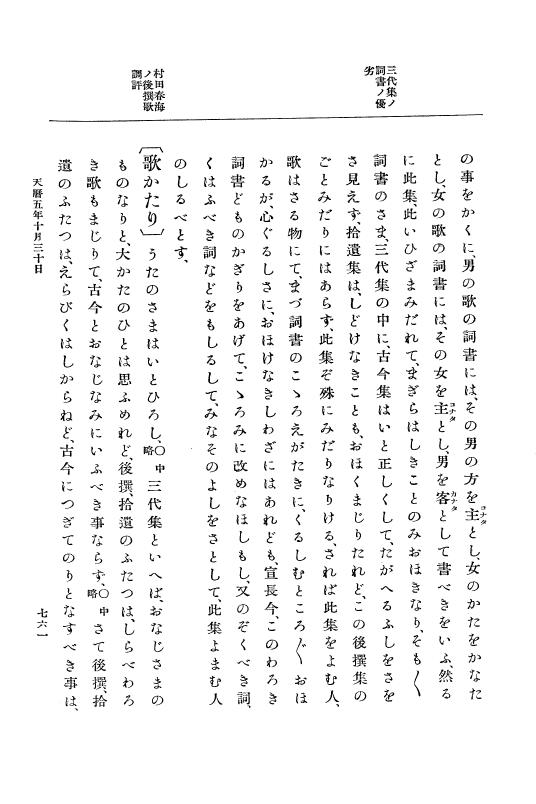 三代集ノ
詞書ノ優
劣
村田春海
ノ後撰歌
調評
の事をかくに、男の歌の詞書には、その男の方を主とし、女のかたをかなた
コナタ
とし、女の歌の詞書には、その女を主とし、男を客として書べきをいふ、然る
コナタ
カナタ
に此集、此いひざまみだれて、まぎらはしきことのみおほきなり、そも〳〵
詞書のさま、三代集の中に、古今集はいと正しくして、たがへるふしをさを
さ見えず、拾遺集は、しどけなきことも、おほくまじりたれど、この後撰集の
ごとみだりにはあらず、此集ぞ殊にみだりなりける、されば此集をよむ人、
歌はさる物にて、まづ詞書のこゝろえがたきに、くるしむところ〴〵おほ
かるが、心ぐるしさに、おほけなきしわざにはあれども、宣長今、このわろき
詞書どものかぎりをあげて、こゝろみに改めなほしもし、又のぞくべき詞、
くはふべき詞などをもしるして、みなそのよしをさとして、此集よまむ人
のしるべとす、
〔歌かたり〕うたのさまはいとひろし、〇中略三代集といへば、おなじさまの
ものなりと、大かたのひとは思ふめれど、後撰、拾遺のふたつは、しらべわろ
き歌もまじりて、古今とおなじなみにいふべき事ならず、〇中略さて後撰、拾
遺のふたつは、えらびくはしからねど、古今につぎてのりとなすべき事は、
天曆五年十月三十日
七六一